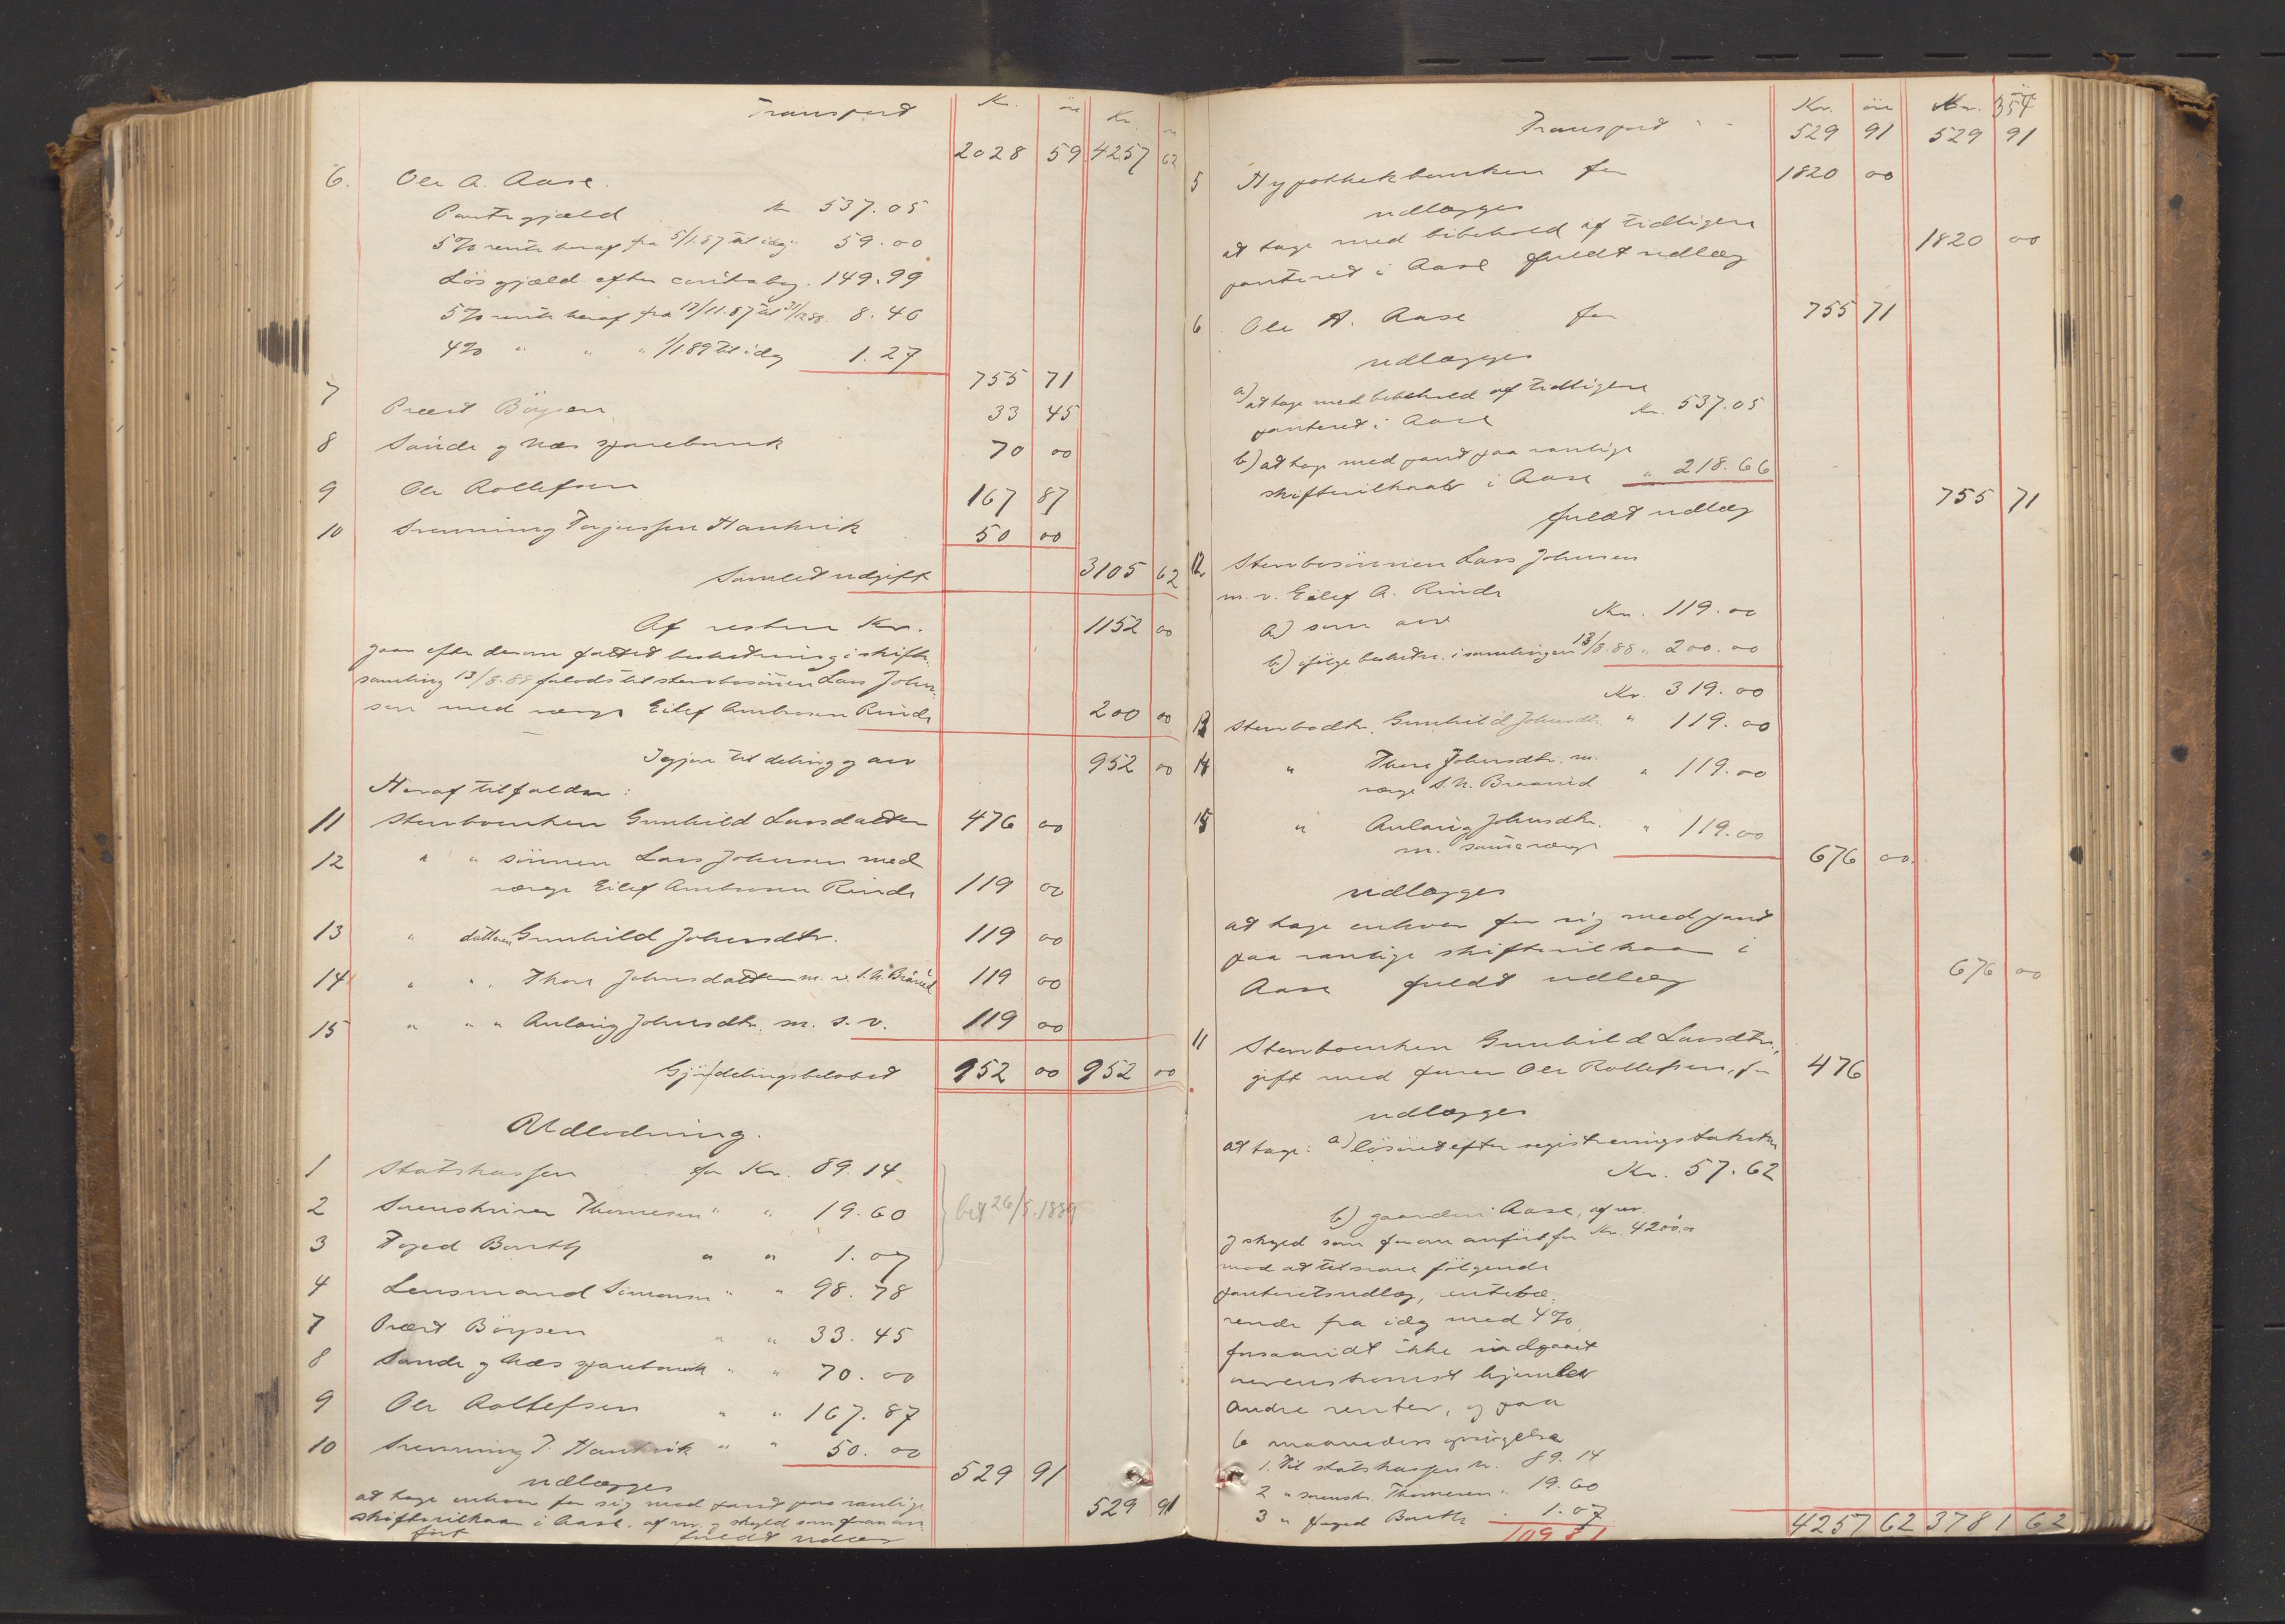 Kr. öre Kr.
Transport 2028 59 4257 62
6. Ole A. Aase.
Pantegjæld kr. 537.05
5% rente heraf fra 5/1.87 til idag " 59.00
Lös gjæld efter contrabog. 149.99
5% rente heraf fra 12/11.87 til 31/12 88. 8.40
4% " " " 1/1.89 til idag 1.27
755 71
7 Præst Böysen 33 45
8 Sande og Næs sparebank 70 00
9 Ole Rollefsen 167 87
10 Srenning Torjussen Haukvik 50 00
Samlet udgift 3105 62
Af resten Kr. 1152 00
gaar efter derom fattet beslutning i skifte-
samling 13/8.88 forlods til sterbosönnen Lars John-
sen med værge Eilef Ambrosen Rinde 200 00
Igjen til deling og arv 952 00
Heraf tilfalder:
11 Sterboenken Gunhild Larsdatter 476 00
12 " " sönnen Lars Johnsen med
værge Eilef Ambrosen Rinde 119 00
13 " datteren Gunhild Johnsdtr. 119 00
14 " " Thore Johnsdatter m. v. S. N. Braavid 119 00
15 " " " Anlaug Johnsdtr. m. s. v. 119 00
Gjör delingsbelöbet 952 00 952 00
Udlodning.
1 Statskassen for Kr. 89.14
2 Sorenskriver Thomesen " " 19.60
bet 26/5.1889
3 Foged Barth " " 1.07
4 Lensmand Simonsen " " 98.78
7 Præst Böysen " " 33.45
8 Sande og Næs sparebank " " 70.00
9 Ole Rollefsen " " 167.87
10 Srenning T. Haukvik " " 50.00
529 91
udlægges
at tage enhver for sig med pant paa vanlige
skiftevilkaar i Aase, af nr. og skyld som foran an-
fört fuldt udlæg
529 91
354
Kr. öre Kr. öre
Transport " " 529 91 529 91
5 Hypothekbanken for 1820 00
udlægges
at tage med bibehold af tidligere
panteret i Aase fuldt udlæg 1820 00
6 Ole A. Aase for 755 71
udlægges
a) at tage med bibehold af tidligere
panteret i Aase Kr. 537.05
b) at tage med pant paa vanlige
skiftevilkaar i Aase " 218.66
fuldt udlæg 755 71
12 Sterbosönnen Lars Johnsen
m. v. Eilef A. Rinde
a) som arv Kr. 119.00
b) ifölge beslutn. i samlingen 13/8.88 " 200.00
Kr. 319.00
13 Sterbodtr. Gunhild Johnsdtr. " 119.00
14 " Thore Johnsdtr. m.
værge S. N. Braavid " 119.00
15 " Anlaug Johnsdtr.
m. samme værge " 119.00
676 00
udlægges
at tage enhver for sig med pant
paa vanlige skiftevilkaar i
Aase fuldt udlæg 676 00
11 Sterboenken Gunhild Larsdtr.,
gift med furer Ole Rollefsen, for 476
udlægges
at tage: a) lösöret efter registreringstaksten
Kr. 57.62
b) gaarden Aase, af nr.
og skyld som foran anfört for Kr. 4200.00
mod at tilsvare fölgende
panteretsudlæg, rentebæ-
rende fra idag med 4%
forsaavidt ikke indgaaet
overenskomst hjemler
andre renter, og paa
6 maaneders opsigelse
1. Til statskassen kr. 89.14
2 " sorenskr. Thomesen " 19.60
3 " foged Barth . 1.07
109 81
4257 62 3781 62